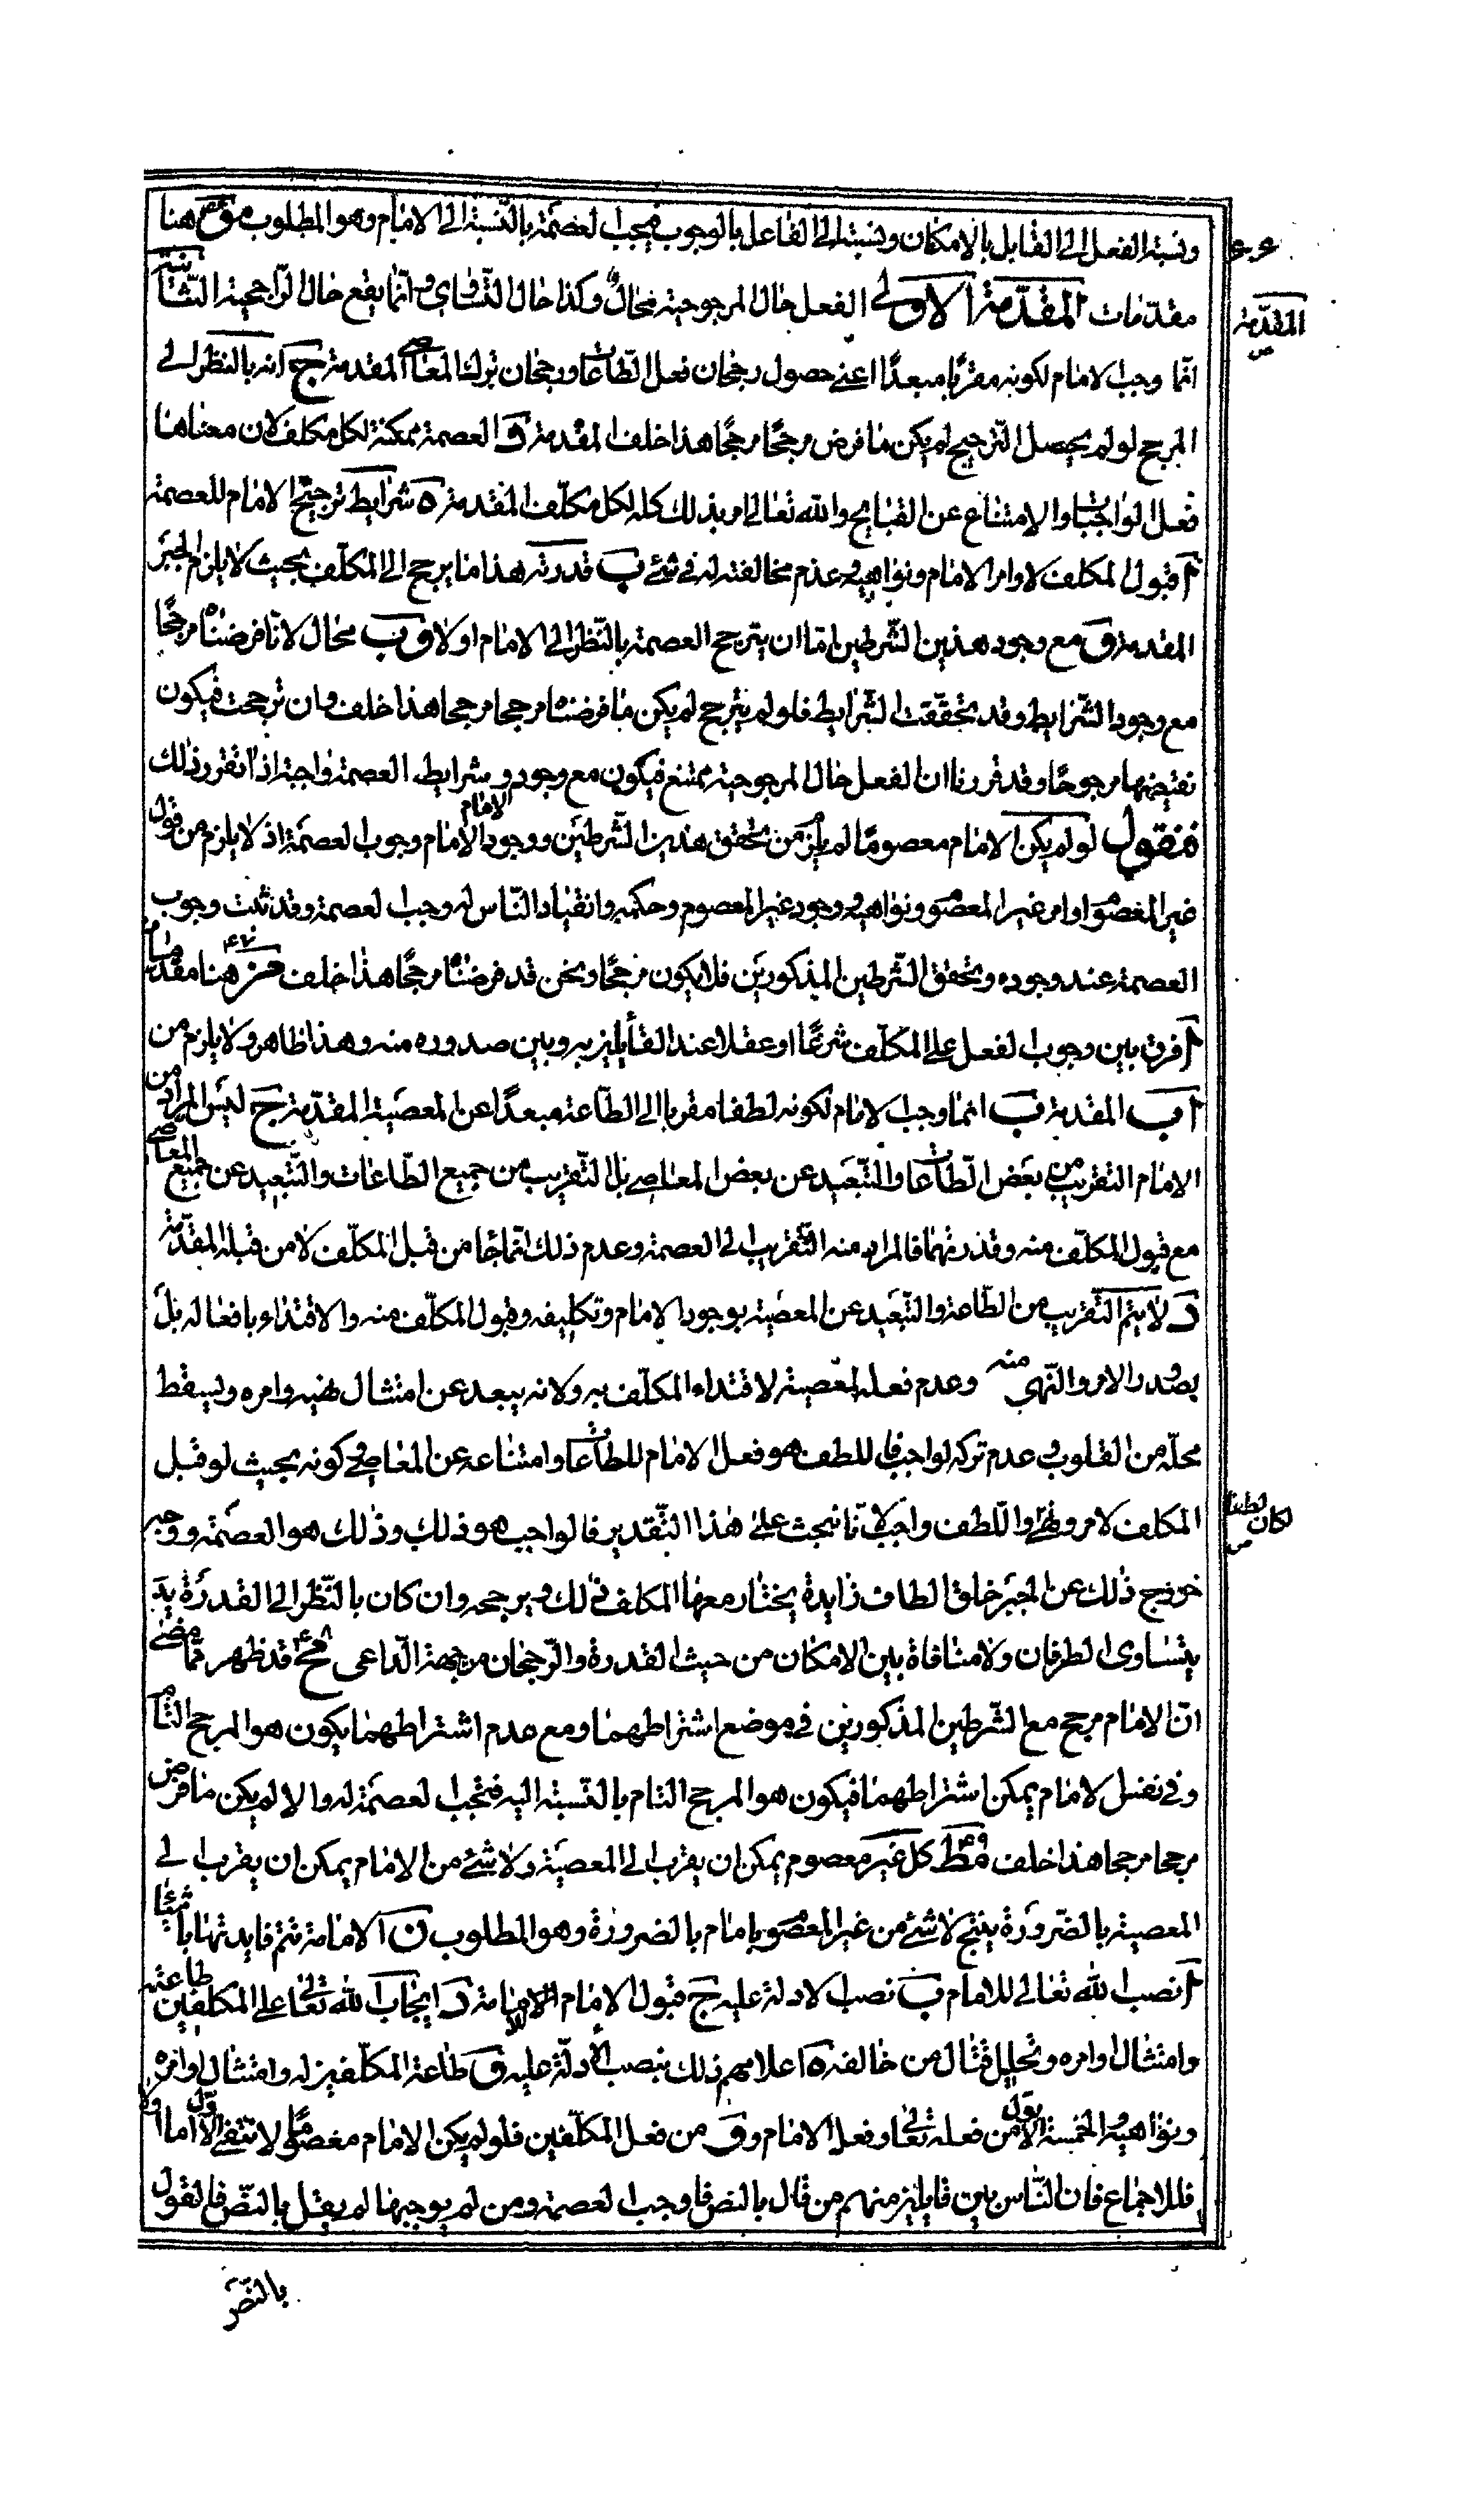 ونسبة الفعل الى القابل بالامكان ونسبته الى الفاعل بالوجوب فيجب العصمة بالنسبة الى الامام وهو المطلوب مو هنا
مقدمات المقدمة الاولى الفعل حال المرجوحية محال وكذا حال التساوي وانما يقع حال الراجحية الثانية
المقدمة
انما وجب الامام لكونه مقربا مبعدا اعني حصول رجحان فعل الطاعات ورجحان ترك المعاصي المقدمة ج انه بالنظر الى
المرجح لو لم يحصل الترجيح لم يكن ما فرض مرجحا مرجحا هذا خلف المقدمة د العصمة ممكنة لكل مكلف لان معناها
فعل الواجبات والامتناع عن القبايح والله تعالى امر بذلك كله لكل مكلف المقدمة ه شرايط ترجيح الامام للعصمة
ا قبول المكلف لاوامر الامام ونواهيه وعدم مخالفته له في شئ ب قدرته هذا ما يرجع الى المكلف بحيث لا يلزم الجبر
المقدمة و مع وجود هذين الشرطين اما ان يترجح العصمة بالنظر الى الامام اولا و ب محال لانا فرضناه مرجحا
مع وجود الشرايط وقد تحققت الشرايط فلو لم يترجح لم يكن ما فرضناه مرجحا مرجحا هذا خلف وان ترجحت فيكون
نقيضها مرجوحا وقد قررنا ان الفعل حال المرجوحية ممتنع فيكون مع وجوده وشرايط العصمة واجبة اذا تقرر ذلك
الامام
فنقول لو لم يكن الامام معصوما لم يلزم من تحقق هذين الشرطين ووجود الامام وجوب العصمة اذ لا يلزم من قبول
غير المعصوم اوامر غير المعصوم ونواهيه ووجود غير المعصوم وحكمه وانقياد الناس له وجب العصمة وقد ثبت وجوب
العصمة عند وجوده وتحقق الشرطين المذكورين فلا يكون مرجحا ونحن قد فرضناه مرجحا هذا خلف مز هنا مقدمات
ا فرق بين وجوب الفعل على المكلف شرعا او عقلا عند القايلين به وبين صدوره منه وهذا ظاهر ولا يلزم من
ا ب المقدمة ب انما وجب الامام لكونه لطفا مقربا الى الطاعة مبعدا عن المعصية المقدمة ج ليس المراد من
الامام التقريب من بعض الطاعات والتبعيد عن بعض المعاصي بل التقريب من جميع الطاعات والتبعيد عن جميع المعاصي
مع قبول المكلف منه وقدرتهما فالمراد منه التقريب الى العصمة وعدم ذلك انما جا من قبل المكلف لا من قبله المقدمة
د لا يتم التقريب من الطاعة والتبعيد عن المعصية بوجود الامام وتكليفه وقبول المكلف منه والاقتداء بافعاله بل
بصدور الامر والنهي منه وعدم فعله المعصية لاقتداء المكلف به ولانه يبعد عن امتثال نهيه وامره ويسقط
محله من القلوب وعدم تركه لواجب فاللطف هو فعل الامام للطاعات وامتناعه عن المعاصي وكونه بحيث لو قبل
المكلف لامره ونهيه واللطف واجب لانا نبحث على هذا التقدير فالواجب هو ذلك وذلك هو العصمة ووجه
لكان لطفا
خروج ذلك عن الجبر خلق الطاف زايدة يختار معها المكلف ذلك ويرجحه وان كان بالنظر الى القدرة
يتساوى الطرفان ولا منافاة بين الامكان من حيث القدرة والرجحان من جهة الداعي مح قد ظهر مما مضى
ان الامام مرجح مع الشرطين المذكورين في موضع اشتراطهما ومع عدم اشتراطهما يكون هو المرجح التام
وفي نفس الامام يمكن اشتراطهما فيكون هو المرجح التام بالنسبة اليه فتجب العصمة له والا لم يكن ما فرض
مرجحا مرجحا هذا خلف مط كل غير معصوم يمكن ان يقرب الى المعصية ولا شئ من الامام يمكن ان يقرب الى
المعصية بالضرورة ينتج لا شئ من غير المعصوم بامام بالضرورة وهو المطلوب ن الامامة تتم فايدتها باشياء
ا نصب الله تعالى للامام ب نصب الادلة عليه ج قبول الامام الامامة د ايجاب الله تعالى على المكلفين طاعته
وامتثال اوامره وتحليل قتال من خالفه ه اعلامهم ذلك بنصب الادلة عليه و طاعة المكلفين له وامتثال اوامره
ونواهيه والخمسة الاول من فعله تعالى وفعل الامام و و من فعل المكلفين فلو لم يكن الامام معصوما لانتفى الاول اما اولا
فللاجماع فان الناس بين قايلين منهم من قال بالنص فاوجب العصمة ومن لم يوجبها لم يقل بالنص فالقول
بالنص